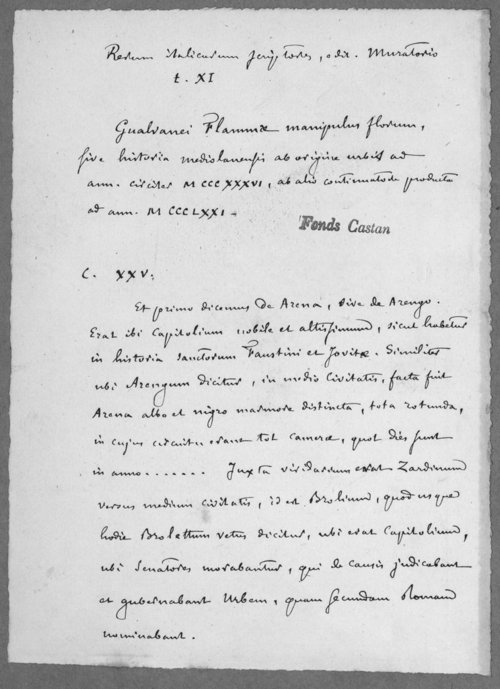 Rerum italicarum scriptores, edit. Muratorio
t. XI
Gualvanei Flammæ manipulus florum,
sive historia mediolanensis ab origine urbis ad
ann. circiter MCCCXXXVI, ab alio continuatore producta
ad ann. MCCCLXXI.
Fonds Castan
C. XXV:
Et primo dicemus de Arena, sive de Arengo.
Erat ibi Capitolium nobile et altissimum, sicut habetur
in historia sanctorum Faustini et Jovitæ. Similiter
ubi Arengum dicitur, in medio Civitatis, facta fuit
Arena albo et nigro marmore distincta, tota rotunda,
in cujus circuitu erant tot cameræ, quot dies sunt
in anno....... Juxta viridarium erat Zardinum
versus medium civitatis, id est Brolium, quod usque
hodie Brolettum vetus dicitur, ubi erat Capitolium,
ubi Senatores morabantur, qui de causis judicabant
et gubernabant Urbem, quam secundam Romam
nominabant.